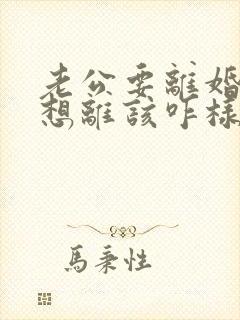 老公要離婚
想離該咋樣
馬秉性